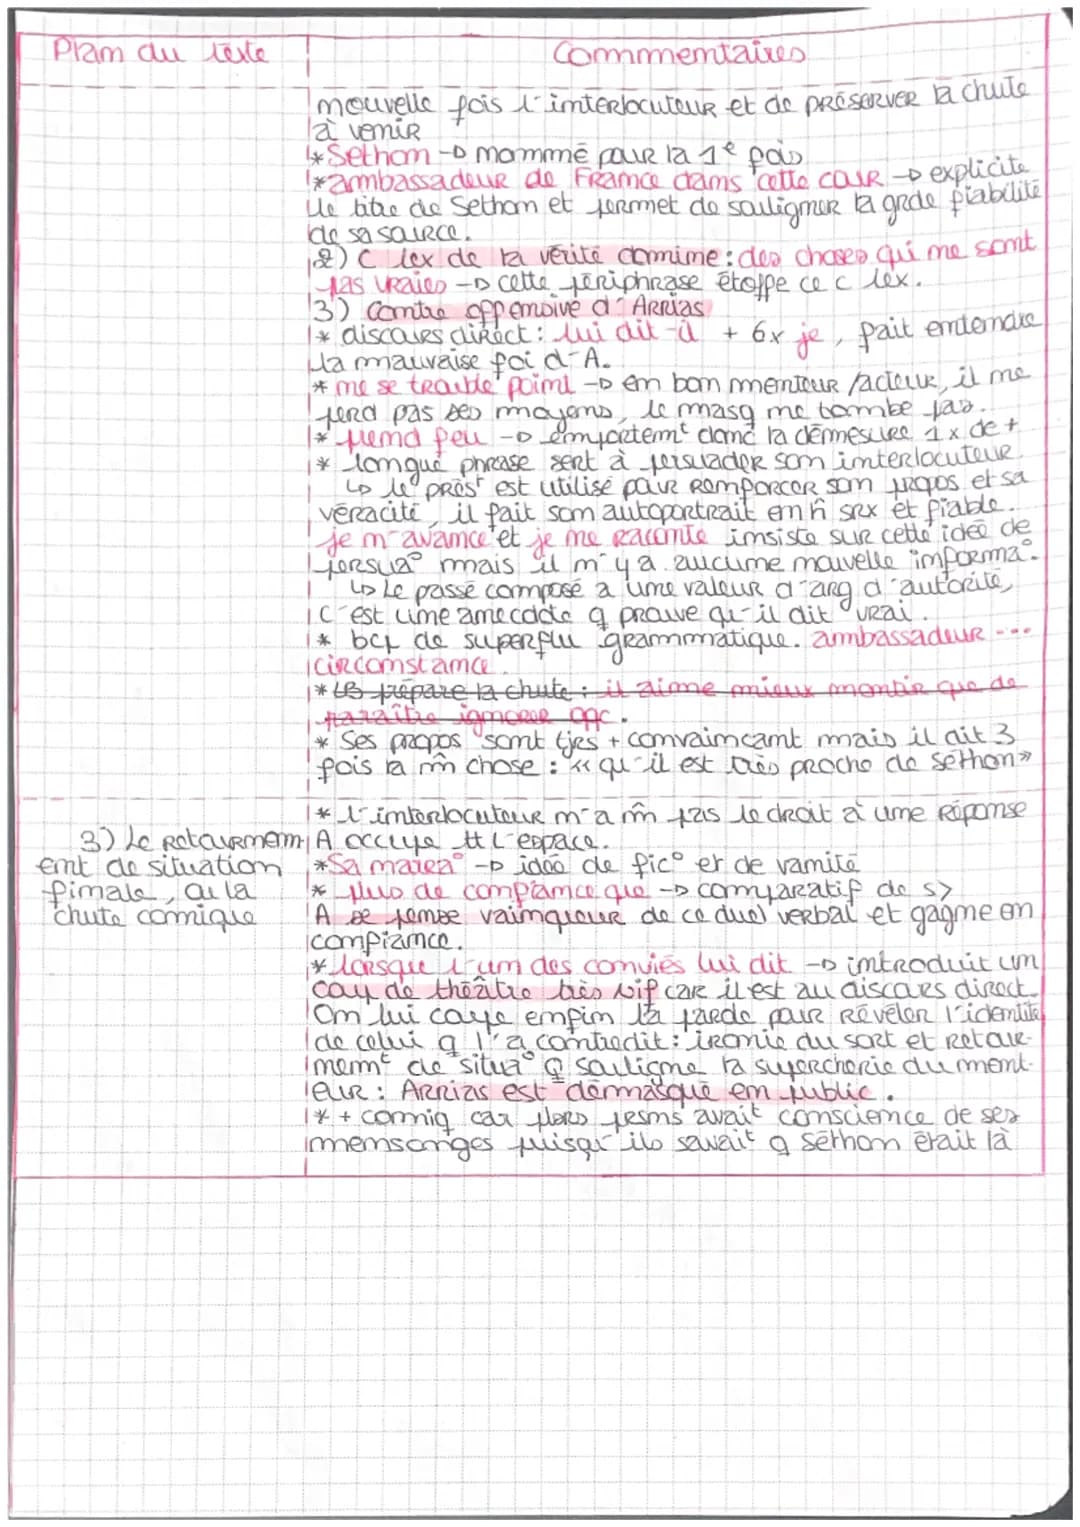 Plan du texte
Commentaires
nouvelle fois l'interlocuteur et de préserver la chute
à venir
* Sethon → nommé pour la 1e fois
* ambassadeur de France dans cette cour → explicite
le titre de Sethon et permet de souligner la grde fiabilité
de sa source.
2) C lex de la vérité domine : des choses qui ne sont
pas vraies → cette périphrase étoffe ce c lex.
3) Contre offensive d'Arrias
* discours direct : lui dit-il + 6x je, fait entendre
la mauvaise foi d'A.
* ne se trouble point → en bon menteur/acteur, il ne
perd pas ses moyens, le masq ne tombe pas.
* prend feu → emportemt donc la démesure 1x de +
* longue phrase sert à persuader son interlocuteur
↳ le prést est utilisé pour renforcer son propos et sa
véracité, il fait son autoportrait en h srx et fiable.
je m'avance et je me raconte insiste sur cette idée de
persua° mais il n'y a aucune nouvelle informa°.
↳ Le passé composé a une valeur d'arg d'autorité,
C'est une anecdote q prouve qu'il dit vrai.
* bcp de superflu grammatique. ambassadeur ....
circonstance.
* LB prépare la chute : il aime mieux mentir que de
paraître ignorer qqc.
* Ses propos sont tjrs + convaincant mais il dit 3
fois la m̂ chose : « qu'il est très proche de Sethon »
* l'interlocuteur n'a m̂ pas le droit à une réponse
3) Le retournem
A occupe tt l'espace.
ent de situation
* Sa narra° → idée de fic° et de vanité
finale, ou la
* plus de confiance que → comparatif de s>
chute comique
A se pense vainqueur de ce duel verbal et gagne en
confiance.
* lorsque l'un des conviés lui dit → introduit un
coup de théâtre très vif car il est au discours direct
On lui coupe enfin la parole pour révéler l'identité
de celui q l'a contredit : ironie du sort et retour-
nemt de situa° q souligne la supercherie du ment-
eur : Arrias est démasqué en public.
* + comiq car plers persns avait conscience de ses
mensonges puisqu'ils savait q Séthon était là